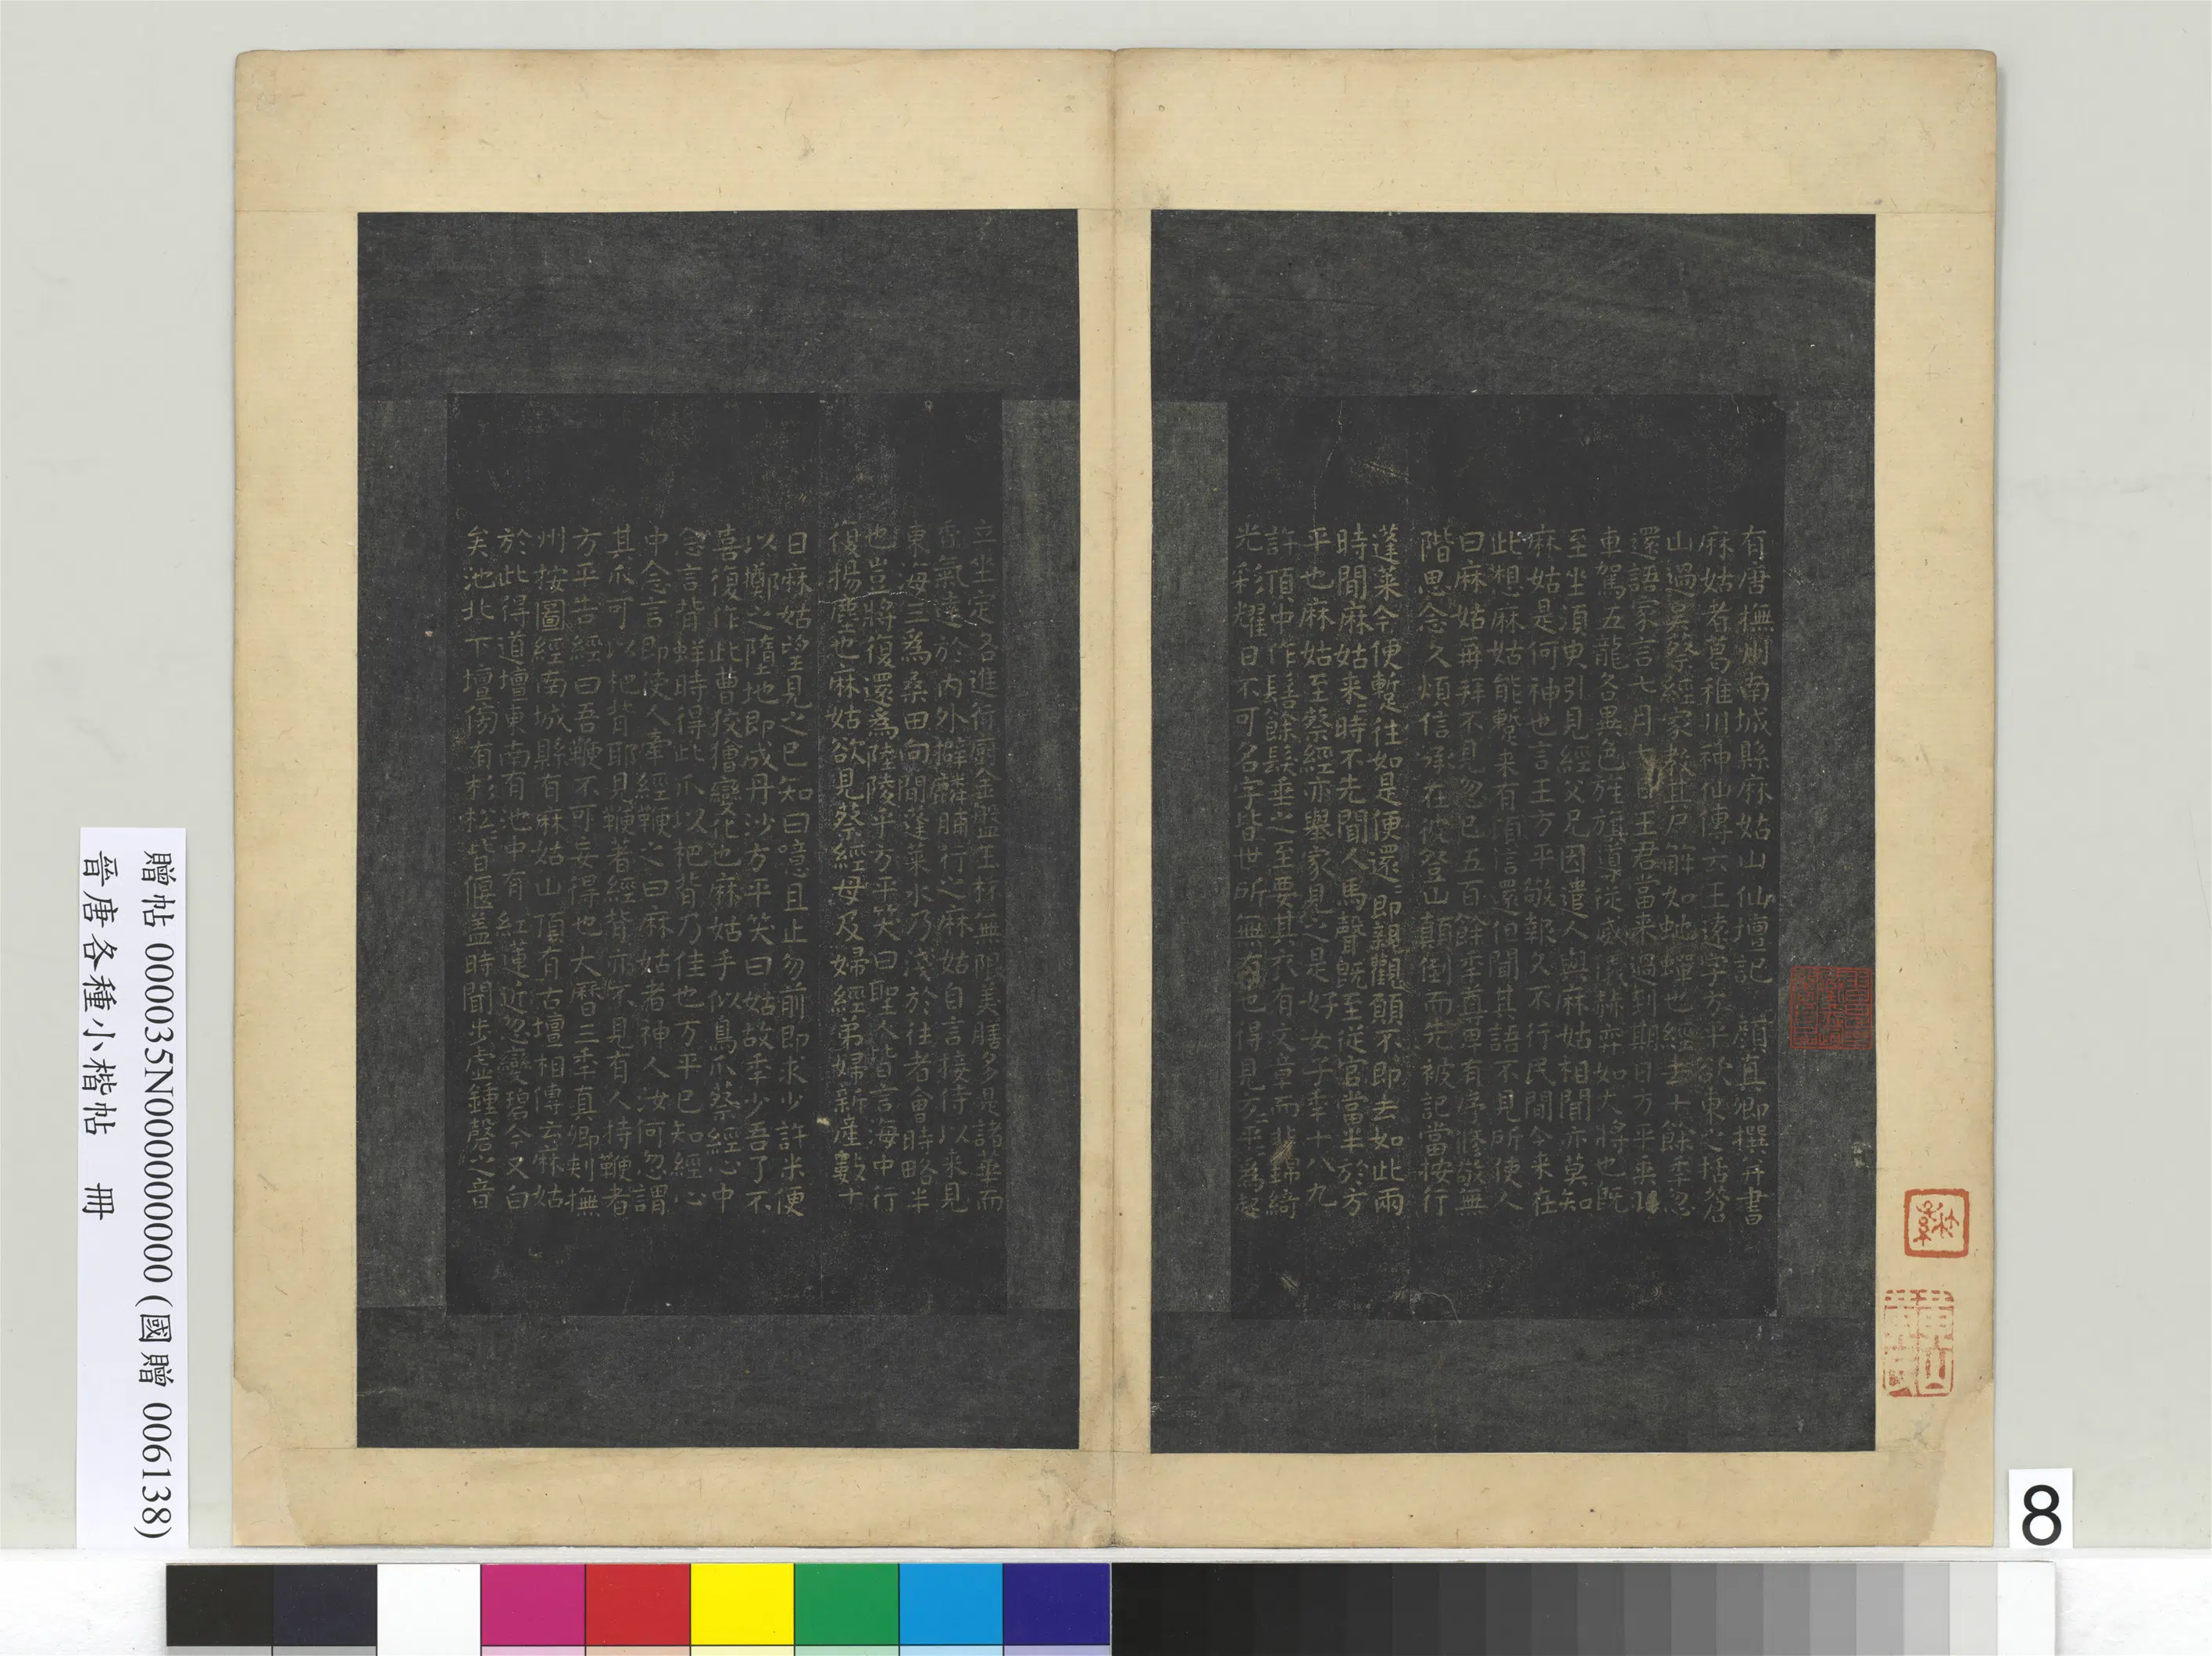 有唐撫州南城縣麻姑山仙壇記 顏真卿撰并書
麻姑者葛稚川神仙傳云王遠字方平欲東之括蒼
山過吳蔡經家教其尸解如虵蟬也經去十餘季忽
還語家言七月七日王君當来過到期日方平乘羽
車駕五龍各異色旌旗導從威儀赫弈如大將也旣
至坐須臾引見經父兄因遣人與麻姑相聞亦莫知
麻姑是何神也言王方平敬報久不行民間今来在
此想麻姑能蹔来有頃信還但聞其語不見所使人
曰麻姑再拜不見忽已五百餘季尊卑有序修敬無
階思念久煩信承在彼登山顛倒而先被記當按行
蓬萊今便蹔往如是便還還即親觀願不即去如此兩
時聞麻姑来来時不先聞人馬聲旣至從官當半於方
平也麻姑至蔡經亦舉家見之是好女子季十八九
許頂中作髻餘髮垂之至要其衣有文章而非錦綺
光彩耀日不可名字皆世所無有也得見方平方平為起
立坐定各進行廚金盤玉杯無限美膳多是諸華而
香氣達於內外擗麟脯行之麻姑自言接待以来見
東海三為桑田向間蓬萊水乃淺於往者會時略半
也豈將復還為陸陵乎方平笑曰聖人皆言海中行
復揚塵也麻姑欲見蔡經母及婦經弟婦新產數十
日麻姑望見之已知曰噫且止勿前即求少許米便
以擲之墮地即成丹沙方平笑曰姑故季少吾了不
喜復作此曹狡獪變化也麻姑手似鳥爪蔡經心中
念言背蛘時得此爪以杷背乃佳也方平已知經心
中念言即使人牽經鞭之曰麻姑者神人汝何忽謂
其爪可以杷背耶見鞭著經背亦不見有人持鞭者
方平告經曰吾鞭不可妄得也大曆三季真卿刺撫
州按圖經南城縣有麻姑山頂有古壇相傳云麻姑
於此得道壇東南有池中有紅蓮近忽變碧今又白
矣池北下壇傍有杉松皆偃蓋時聞步虛鍾磬之音
贈帖 000035N000000000 (國贈 006138)
晉唐各種小楷帖 冊
8